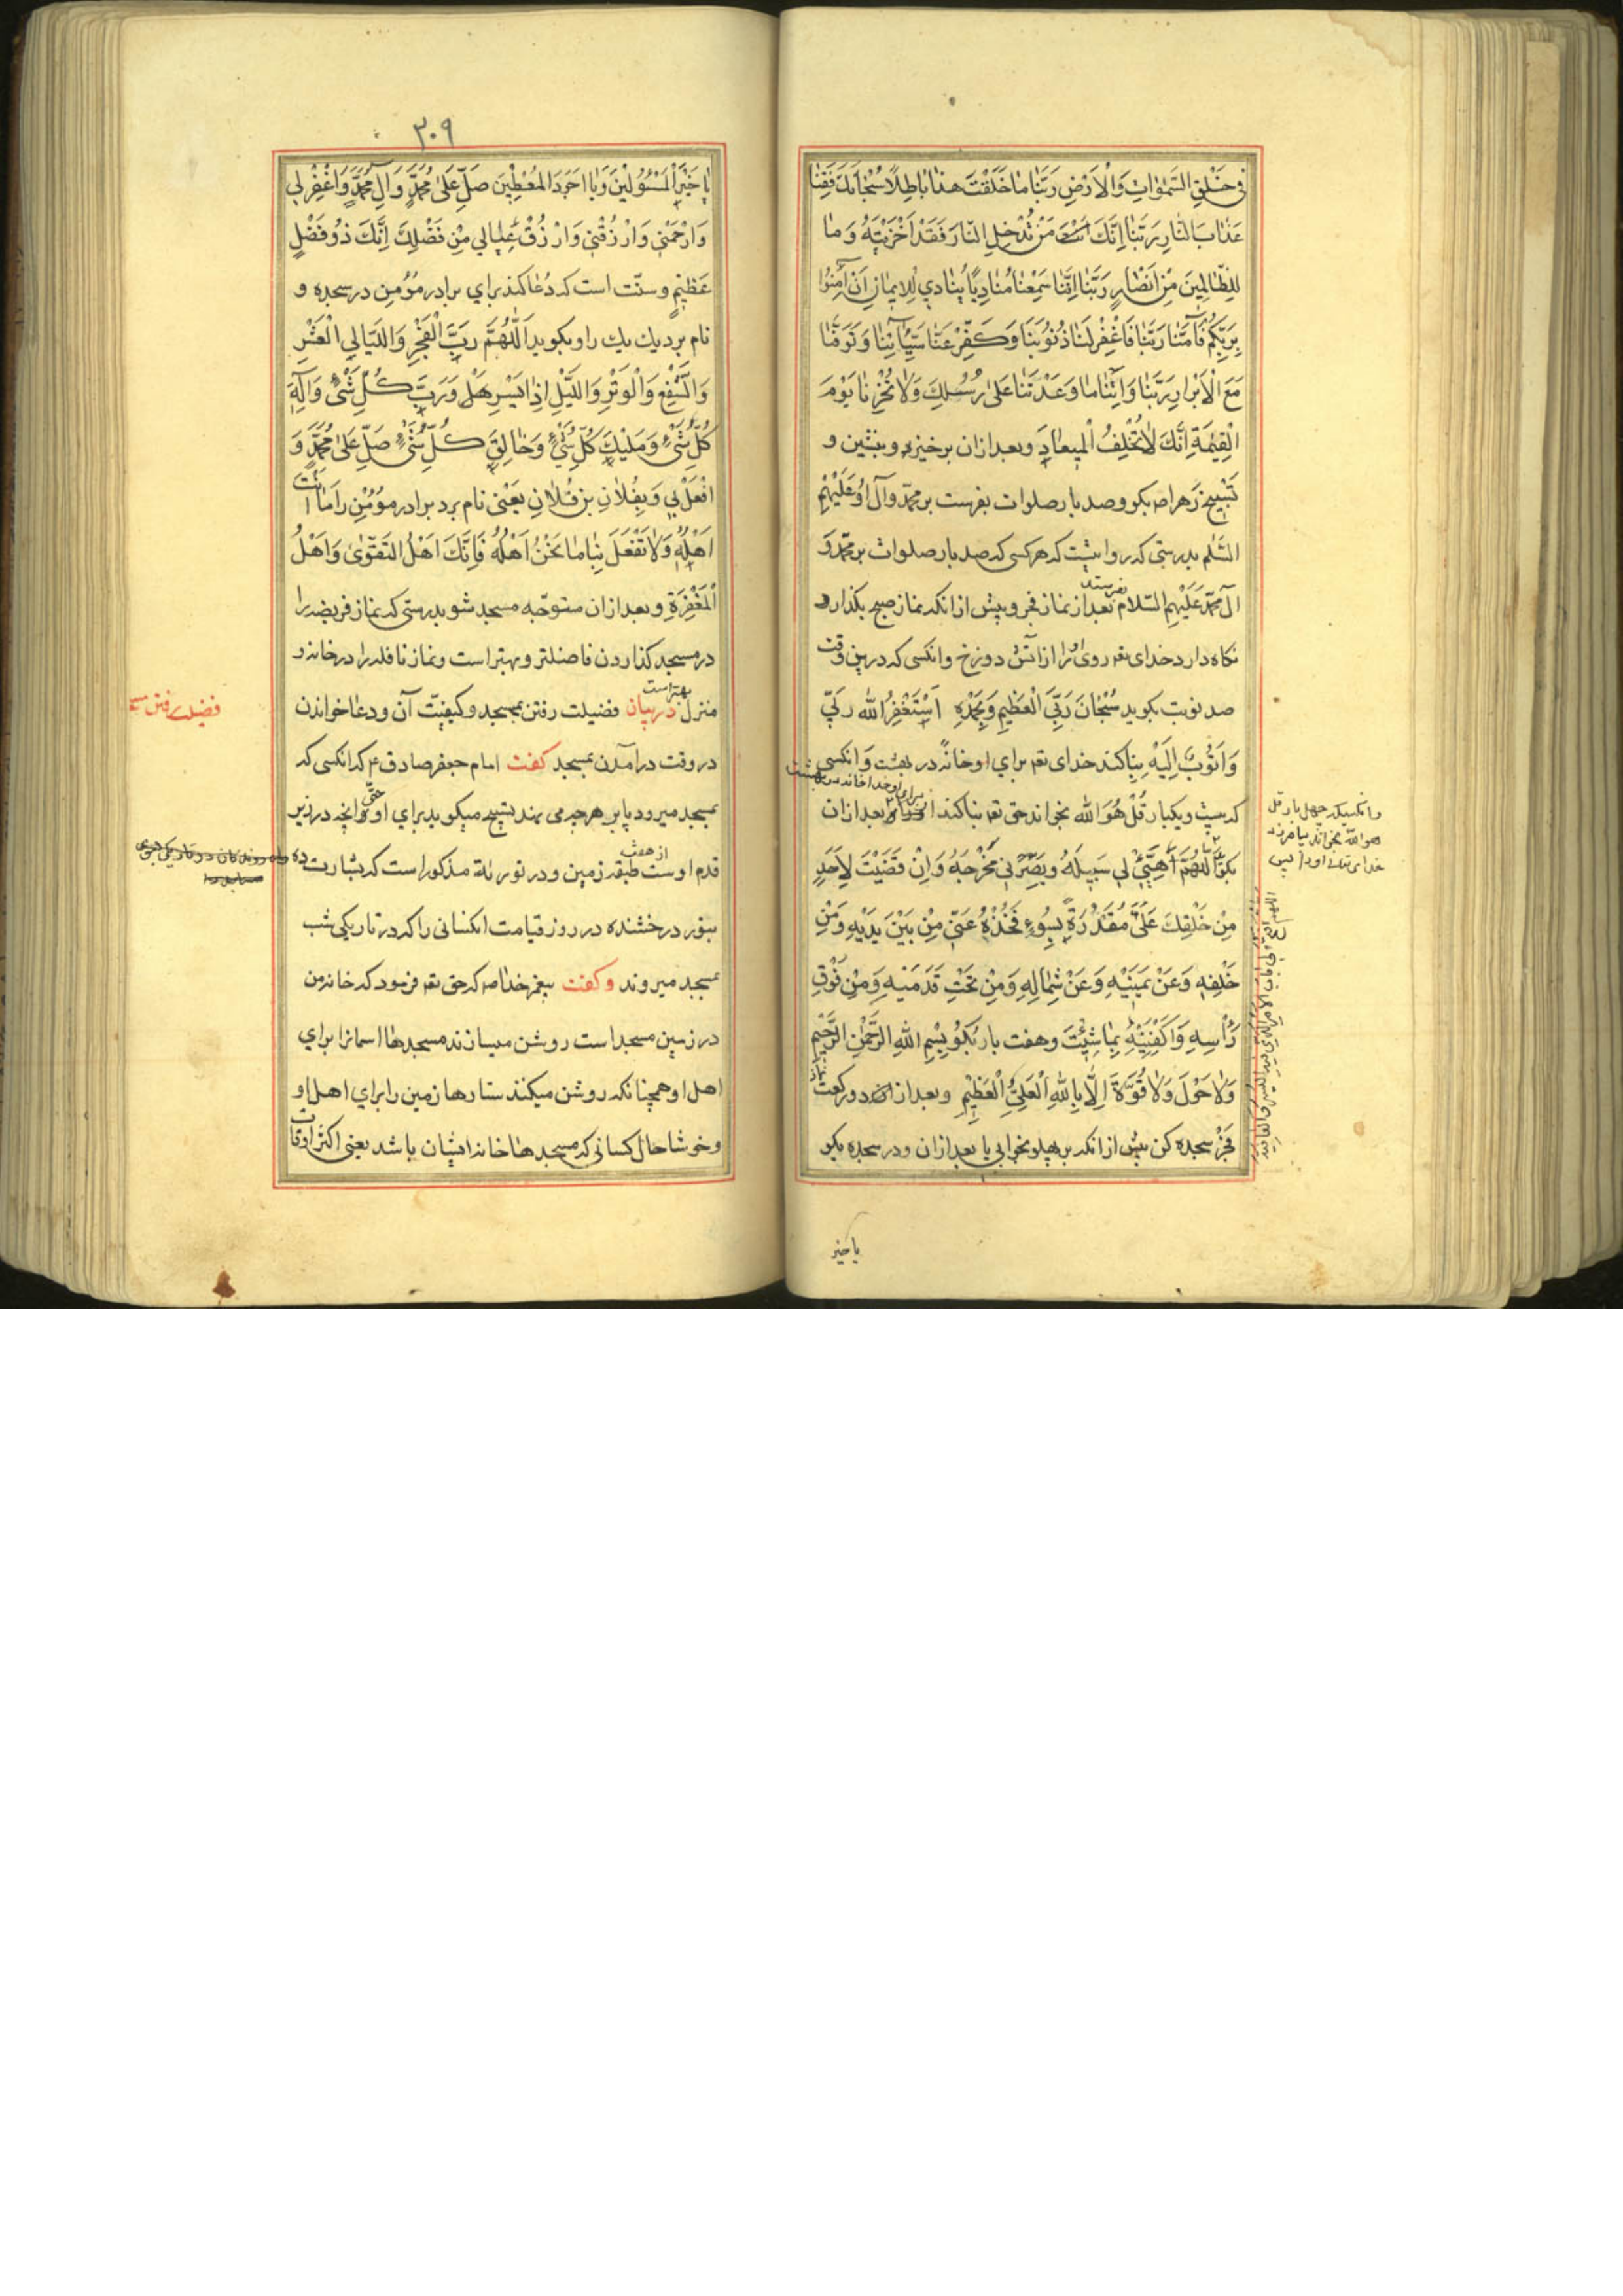 فی خَلْقِ السَّمٰوٰاتِ وَالْاَرْضِ رَبَّنٰا مٰا خَلَقْتَ هذٰا بٰاطِلًا سُبْحٰانَكَ فَقِنٰا
عَذٰابَ النّٰارِ رَبَّنٰا اِنَّكَ مَنْ تُدْخِلِ النّٰارَ فَقَدْ اَخْزَیْتَهُ وَمٰا
لِلظّٰالِمینَ مِنْ اَنْصٰارٍ رَبَّنٰا اِنَّنٰا سَمِعْنٰا مُنٰادِیًا یُنٰادي لِلْایمٰانِ اَنْ آمِنُوا
بِرَبِّكُمْ فَآمَنّٰا رَبَّنٰا فَاغْفِرْ لَنٰا ذُنُوبَنٰا وَكَفِّرْ عَنّٰا سَیِّئٰاتِنٰا وَتَوَفَّنٰا
مَعَ الْاَبْرٰارِ رَبَّنٰا وَآتِنٰا مٰا وَعَدْتَنٰا عَلیٰ رُسُلِكَ وَلٰا تُخْزِنٰا یَوْمَ
الْقِیٰمَةِ اِنَّكَ لٰا تُخْلِفُ الْمیعٰادَ وبعد ازان برخیز و بنشین و
تَسْبیح زَهرا ص بکو و صد بار صلوات بفرست بر محمّد وآل او عَلَیْهِمُ
السَّلٰم بدرستی که روایتست که هر کسی که صد بار صلوات بر محمّد وَ
آل محمّد عَلَیْهِمُ السّلام بفرستد بعد از نماز فجر و پیش از انکه نماز صبح بکذارد
نکاه دارد خدای تعه روی او را از آتش دوزخ و انکسی که درین وقت
صد نوبت بکوید سُبْحٰانَ رَبِّيَ الْعَظیمِ وَبِحَمْدِهِ اَسْتَغْفِرُ الله رَبّي
وَاَتُوبُ اِلَیْهِ بنا کند خدای تعه براي او خانهٔ در بهشت وَانکسی
که بیست و یکبار قُلْ هُوَ الله بخواند حق تعه بنا کند بعد ازان
بکو اَللّٰهُمَّ لي سَبیلَهُ وَبَصِّرْني مَخْرَجَهُ وَاِنْ قَضَیْتَ لِاَحَدٍ
مِنْ خَلْقِكَ عَلَيَّ مَقْدُرَةً بِسُوءٍ فَخُذْهُ عَنّي مِنْ بَیْنَ یَدَیْهِ وَمِنْ
خَلْفِهِ وَعَنْ یَمینِهِ وَعَنْ شِمٰالِهِ وَمِنْ تَحْتِ قَدَمَیْهِ وَمِنْ فَوْقِ
رَأْسِهِ وَاكْفِنیهِ بِمٰا شِئْتَ وهفت بار بکو بِسْمِ اللهِ الرَّحْمٰنِ الرَّحیمِ
وَلٰا حَوْلَ وَلٰا قُوَّةَ اِلّٰا بِاللهِ الْعَلِيِّ الْعَظیمِ وبعد ازان دو رکعت نماز
فجر سجده کن پیش از انکه بر پهلو بخوابی یا بعد ازان و در سجده بکو
وانکسیکه چهل بار قل
هو الله بخواند بیامرزد
خدای تعالی او را
یا خیر
٣٠٩
یٰا خَیْرَ الْمَسْئُولینَ وَیٰا اَجْوَدَ الْمُعْطینَ صَلِّ عَلیٰ مُحَمَّدٍ وَآلِ مُحَمَّدٍ وَاغْفِرْ لي
وَارْحَمْني وَارْزُقْني وَارْزُقْ عِیٰالي مِنْ فَضْلِكَ اِنَّكَ ذُو فَضْلٍ
عَظیمٍ و سنّت است که دُعٰا کند براي برادر مؤمن در سجده و
نام برد یك یك را و بکوید اَللّٰهُمَّ رَبَّ الْفَجْرِ وَاللَّیٰالِي الْعَشْرِ
وَالشَّفْعِ وَالْوَتْرِ وَاللَّیْلِ اِذٰا یَسْرِ وَرَبَّ كُلِّ شَيْءٍ وَاِلٰهَ
كُلِّ شَيْءٍ وَمَلیكَ كُلِّ شَيْءٍ وَخٰالِقَ كُلِّ شَيْءٍ صَلِّ عَلیٰ مُحَمَّدٍ وَ
افْعَلْ بي وَبِفُلٰانِ بنِ فُلٰانٍ یَعْنی نام برد برادر مؤمن را مٰا اَنْتَ
اَهْلُهُ وَلٰا تَفْعَلْ بِنٰا مٰا نَحْنُ اَهْلُهُ فَاِنَّكَ اَهْلُ التَّقْویٰ وَاَهْلُ
الْمَغْفِرَةِ وبعد ازان متوجّه مسجد شو بدرستی که نماز فریضه را
در مسجد کذاردن فاضلتر و بهتر است و نماز نافله را در خانه و
منزل بهتر است در بیان فضیلت رفتن بمسجد و کیفیّت آن ودعٰا خواندن
در وقت درآمدن بمسجد کفت امام جعفر صادق ع که انکسی که
بمسجد میرود پای بر هر چه می نهد تسبیح میکوید براي او حتّی انچه در زیر
قدم اوست از هفت طبقه زمین و در توریٰة مذکور است که بشارت ده
بنور درخشنده در روز قیامت انکسانی را که در تاریکی شب
بمسجد میروند وکفت پیغمبر خدا ص که حق تعه فرمود که خانه من
در زمین مسجد است روشن میسازند مسجدها اسمانرا براي
اهل او همچنانکه روشن میکنند ستارها زمین را براي اهل او
وخوشا حال کسانی که مسجدها خانه ایشان باشد یعنی اکثر اوقات
فضیلت رفتن